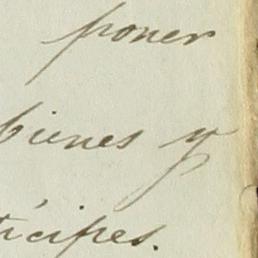 poner
bienes y
tícipes.